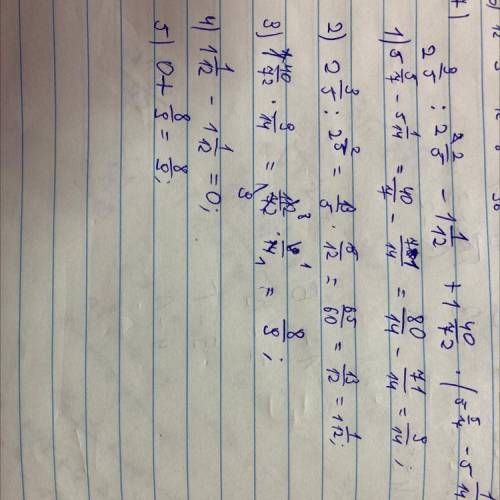 2 3/5 : 2 2/5 - 1 1/12 + 1 40/72 · (5 5/7 - 5 1/14
1) 5 5/7 - 5 1/14 = 40/7 - 71/14 = 80/14 - 71/14 = 9/14;
2) 2 3/5 : 2 2/5 = 13/5 · 5/12 = 65/60 = 13/12 = 1 1/12;
3) 1 40/72 · 9/14 = 112/72 · 9/14 = 8/9;
4) 1 1/12 - 1 1/12 = 0;
5) 0 + 8/9 = 8/9;